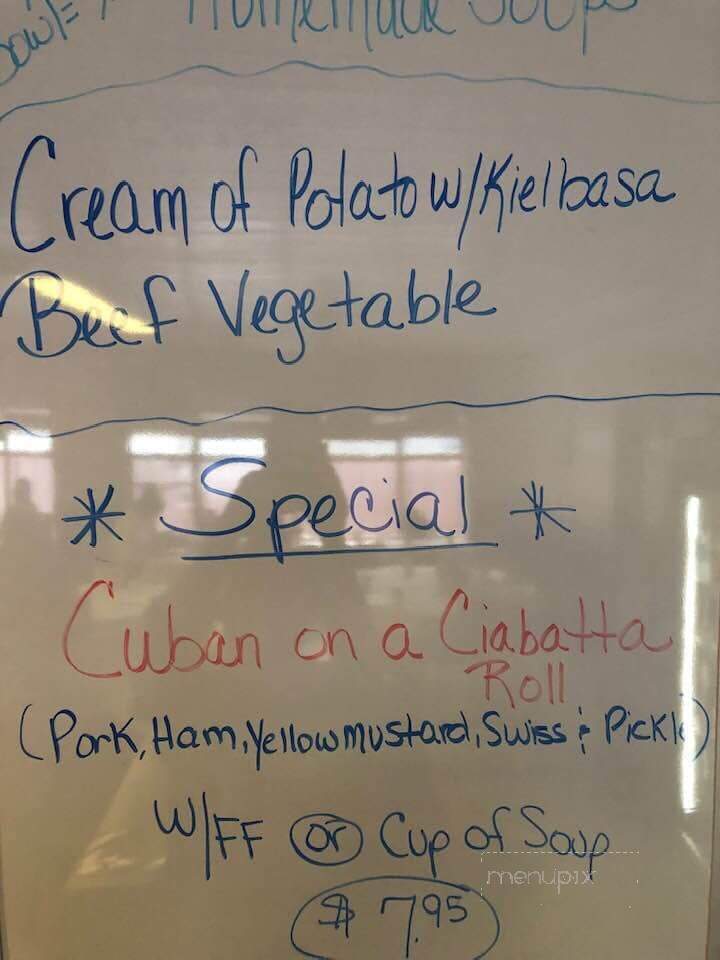 Homemade Soups
Cream of Potato w/Kielbasa
Beef Vegetable
* Special *
Cuban on a Ciabatta
Roll
(Pork, Ham, Yellow mustard, Swiss & Pickle)
W/FF or Cup of Soup
menupix
$ 7.95